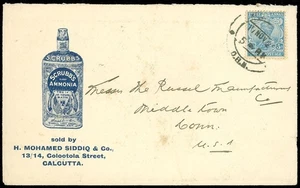 SCRUBB'S
SCRUBB'S
AMMONIA
sold by
H. MOHAMED SIDDIQ & Co.,
13/14, Colootola Street,
CALCUTTA.
Messrs The Russel Manufacturing
Middletown
Conn.
U.S.A